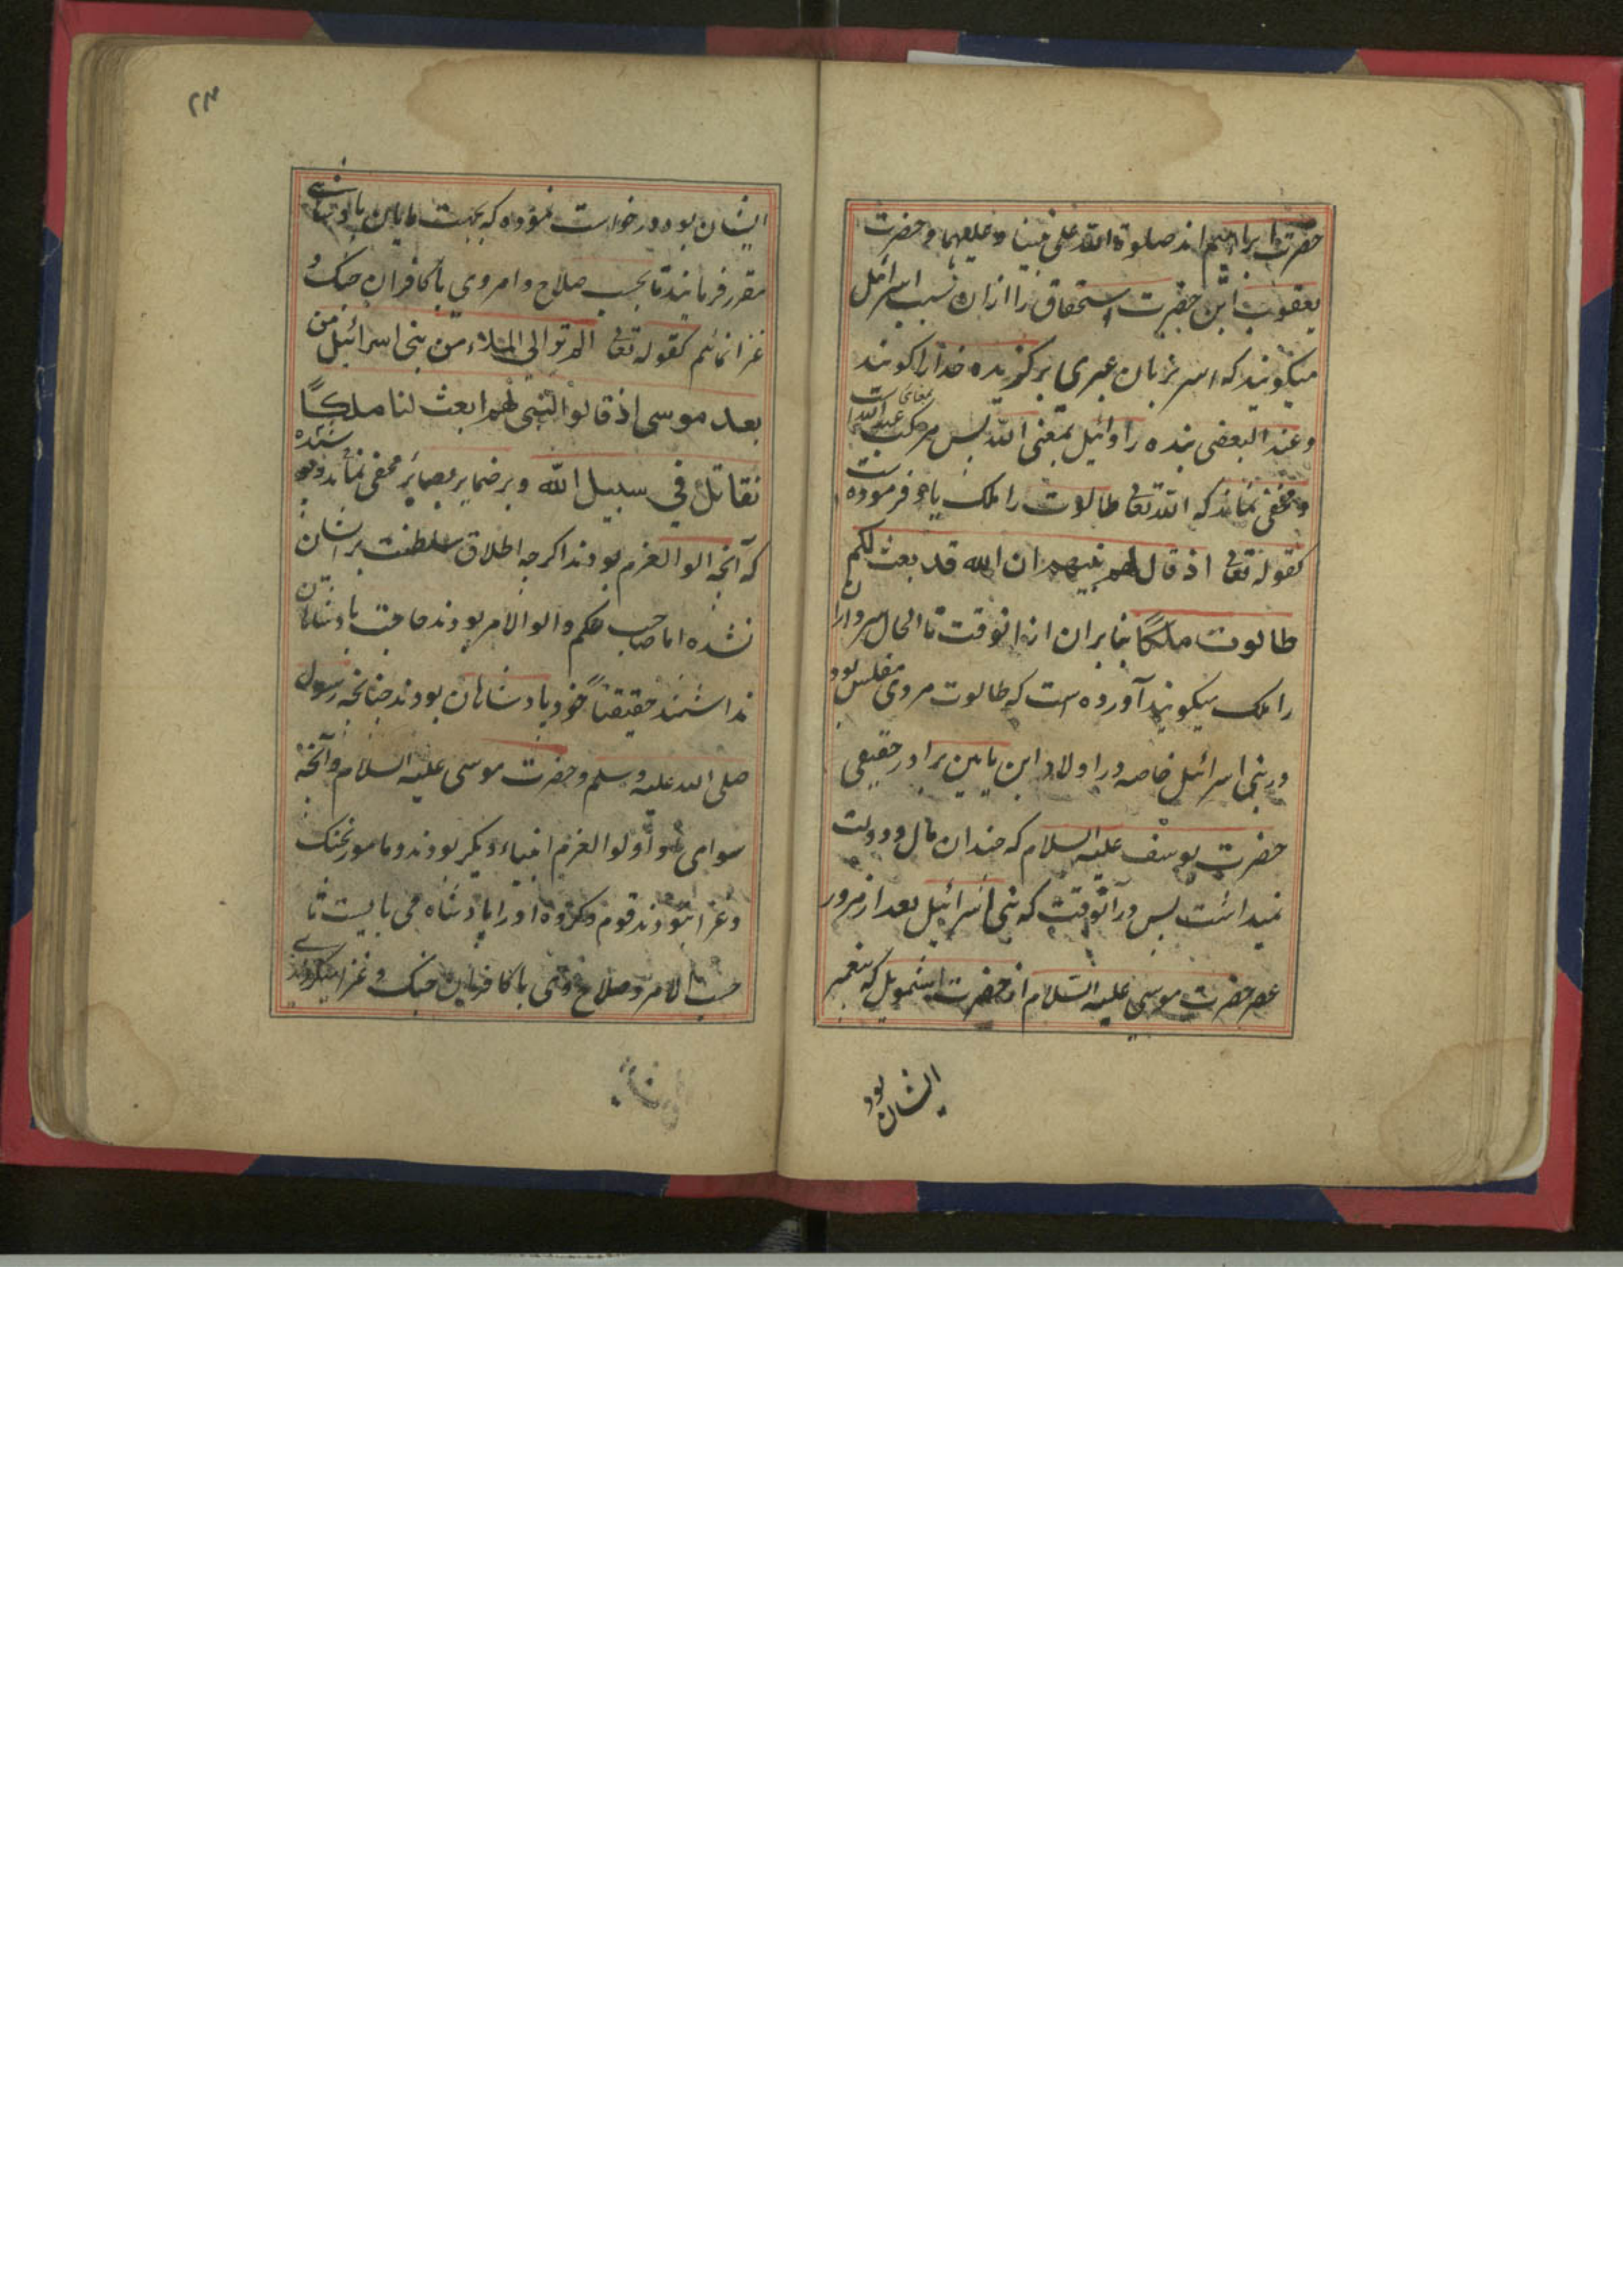 حضرت ابراهیم اند صلوة الله علی نبینا و علیهما و حضرت
یعقوب ابن حضرت اسحقاق را ازان سبب اسرائیل
میکویند که اسر بزبان عبری برکزیده خدا را کویند
وعند البعضی بنده را وائیل بمعنی الله پس مرکب بمعنای عبدالله است
و مخفی نماند که الله تعا طالوت را ملک یاد فرموده است
کقوله تعا اذ قال لهم نبیهم ان الله قد بعث لکم
طالوت ملکًا بنابران از انوقت تا الحال سرداران
را ملک میکویند آورده است که طالوت مردی مفلس بود
در بنی اسرائیل خاصه در اولاد ابن یامین برادر حقیقی
حضرت یوسف علیه السلام که چندان مال و دولت
نمیداشت پس در آنوقت که بنی اسرائیل بعد از مرور
عصر حضرت موسی علیه السلام از حضرت اشمویل که پیغمبر
ایشان بود
۲۳
ایشان بود درخواست نموده که بجهت مایان بادشاهی
مقرر فرمایند تا بحسب صلاح و امر وی با کافران جنک و
غزا نمائیم کقوله تعا الم تر الی الملاء من بنی اسرائیل من
بعد موسی اذ قالوا لنبی لهم ابعث لنا ملکًا
نقاتل فی سبیل الله و بر ضمایر بصایر مخفی نماند
که آنچه الو العزم بودند اکرچه اطلاق سلطنت بر ایشان
نشده اما صاحب حکم و الو الامر بودند حاجت بادشاهان
نداشتند حقیقتاً خود بادشاهان بودند چنانچه رسول
صلی الله علیه وسلم و حضرت موسی علیه السلام و آنچه
سوای اولو العزم انبیاء دیکر بودند و مامور بجنک
و غزا نبودند قوم وکروه او را بادشاه می بایست تا
حسب الامر و صلاح وی با کافران جنک و غزا میکردند